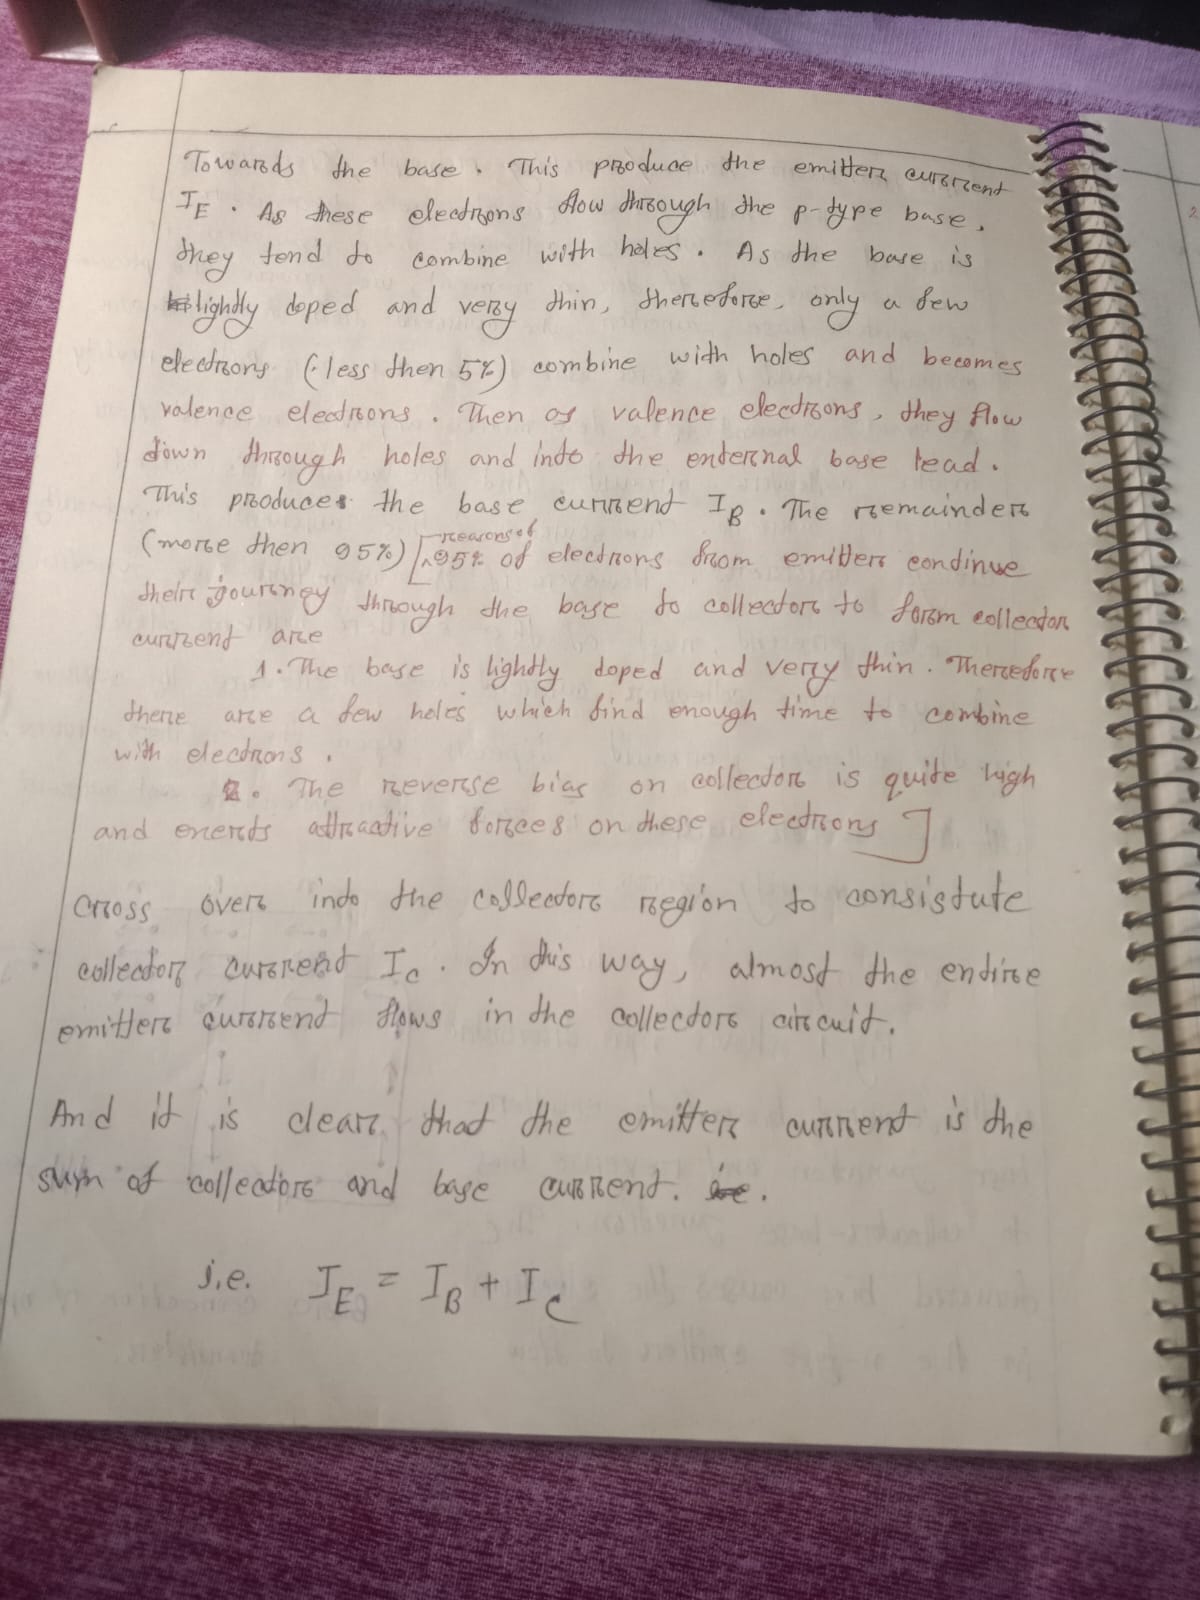 Towards the base. This produce the emitter current
IE. As these electrons flow through the p-type base,
they tend to combine with holes. As the base is
lightly doped and very thin, therefore, only a few
electrons (less then 5%) combine with holes and becomes
valence electrons. Then as valence electrons, they flow
down through holes and into the external base lead.
This produces the base current IB. The remainder
(more then 95%) [reasons of 95% of electrons from emitter continue
their journey through the base to collector to form collector
current are
1. The base is lightly doped and very thin. Therefore
there are a few holes which find enough time to combine
with electrons.
2. The reverse bias on collector is quite high
and exerts attractive forces on these electrons]
cross over into the collector region to consistute
collector current Ic. In this way, almost the entire
emitter current flows in the collector circuit.
And it is clear that the emitter current is the
sum of collector and base current.
i.e. IE = IB + IC